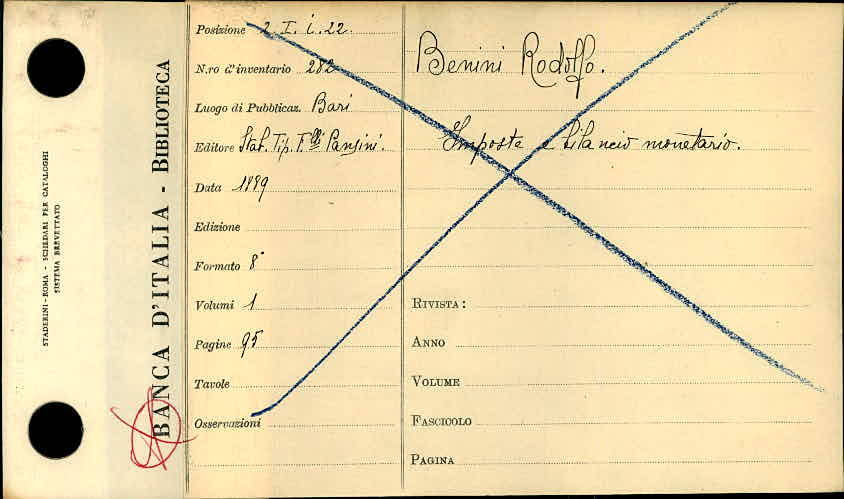 STADERINI - ROMA - SCHEDARI PER CATALOGHI
SISTEMA BREVETTATO
BANCA D'ITALIA - BIBLIOTECA
Posizione 2. I. i. 22
N.ro d'inventario 282
Luogo di Pubblicaz. Bari
Editore Stab. Tip. F.lli Pansini.
Data 1889
Edizione
Formato 8°
Volumi 1
Pagine 95
Tavole
Osservazioni
Benini Rodolfo.
Imposte e bilancio monetario.
RIVISTA:
ANNO
VOLUME
FASCICOLO
PAGINA